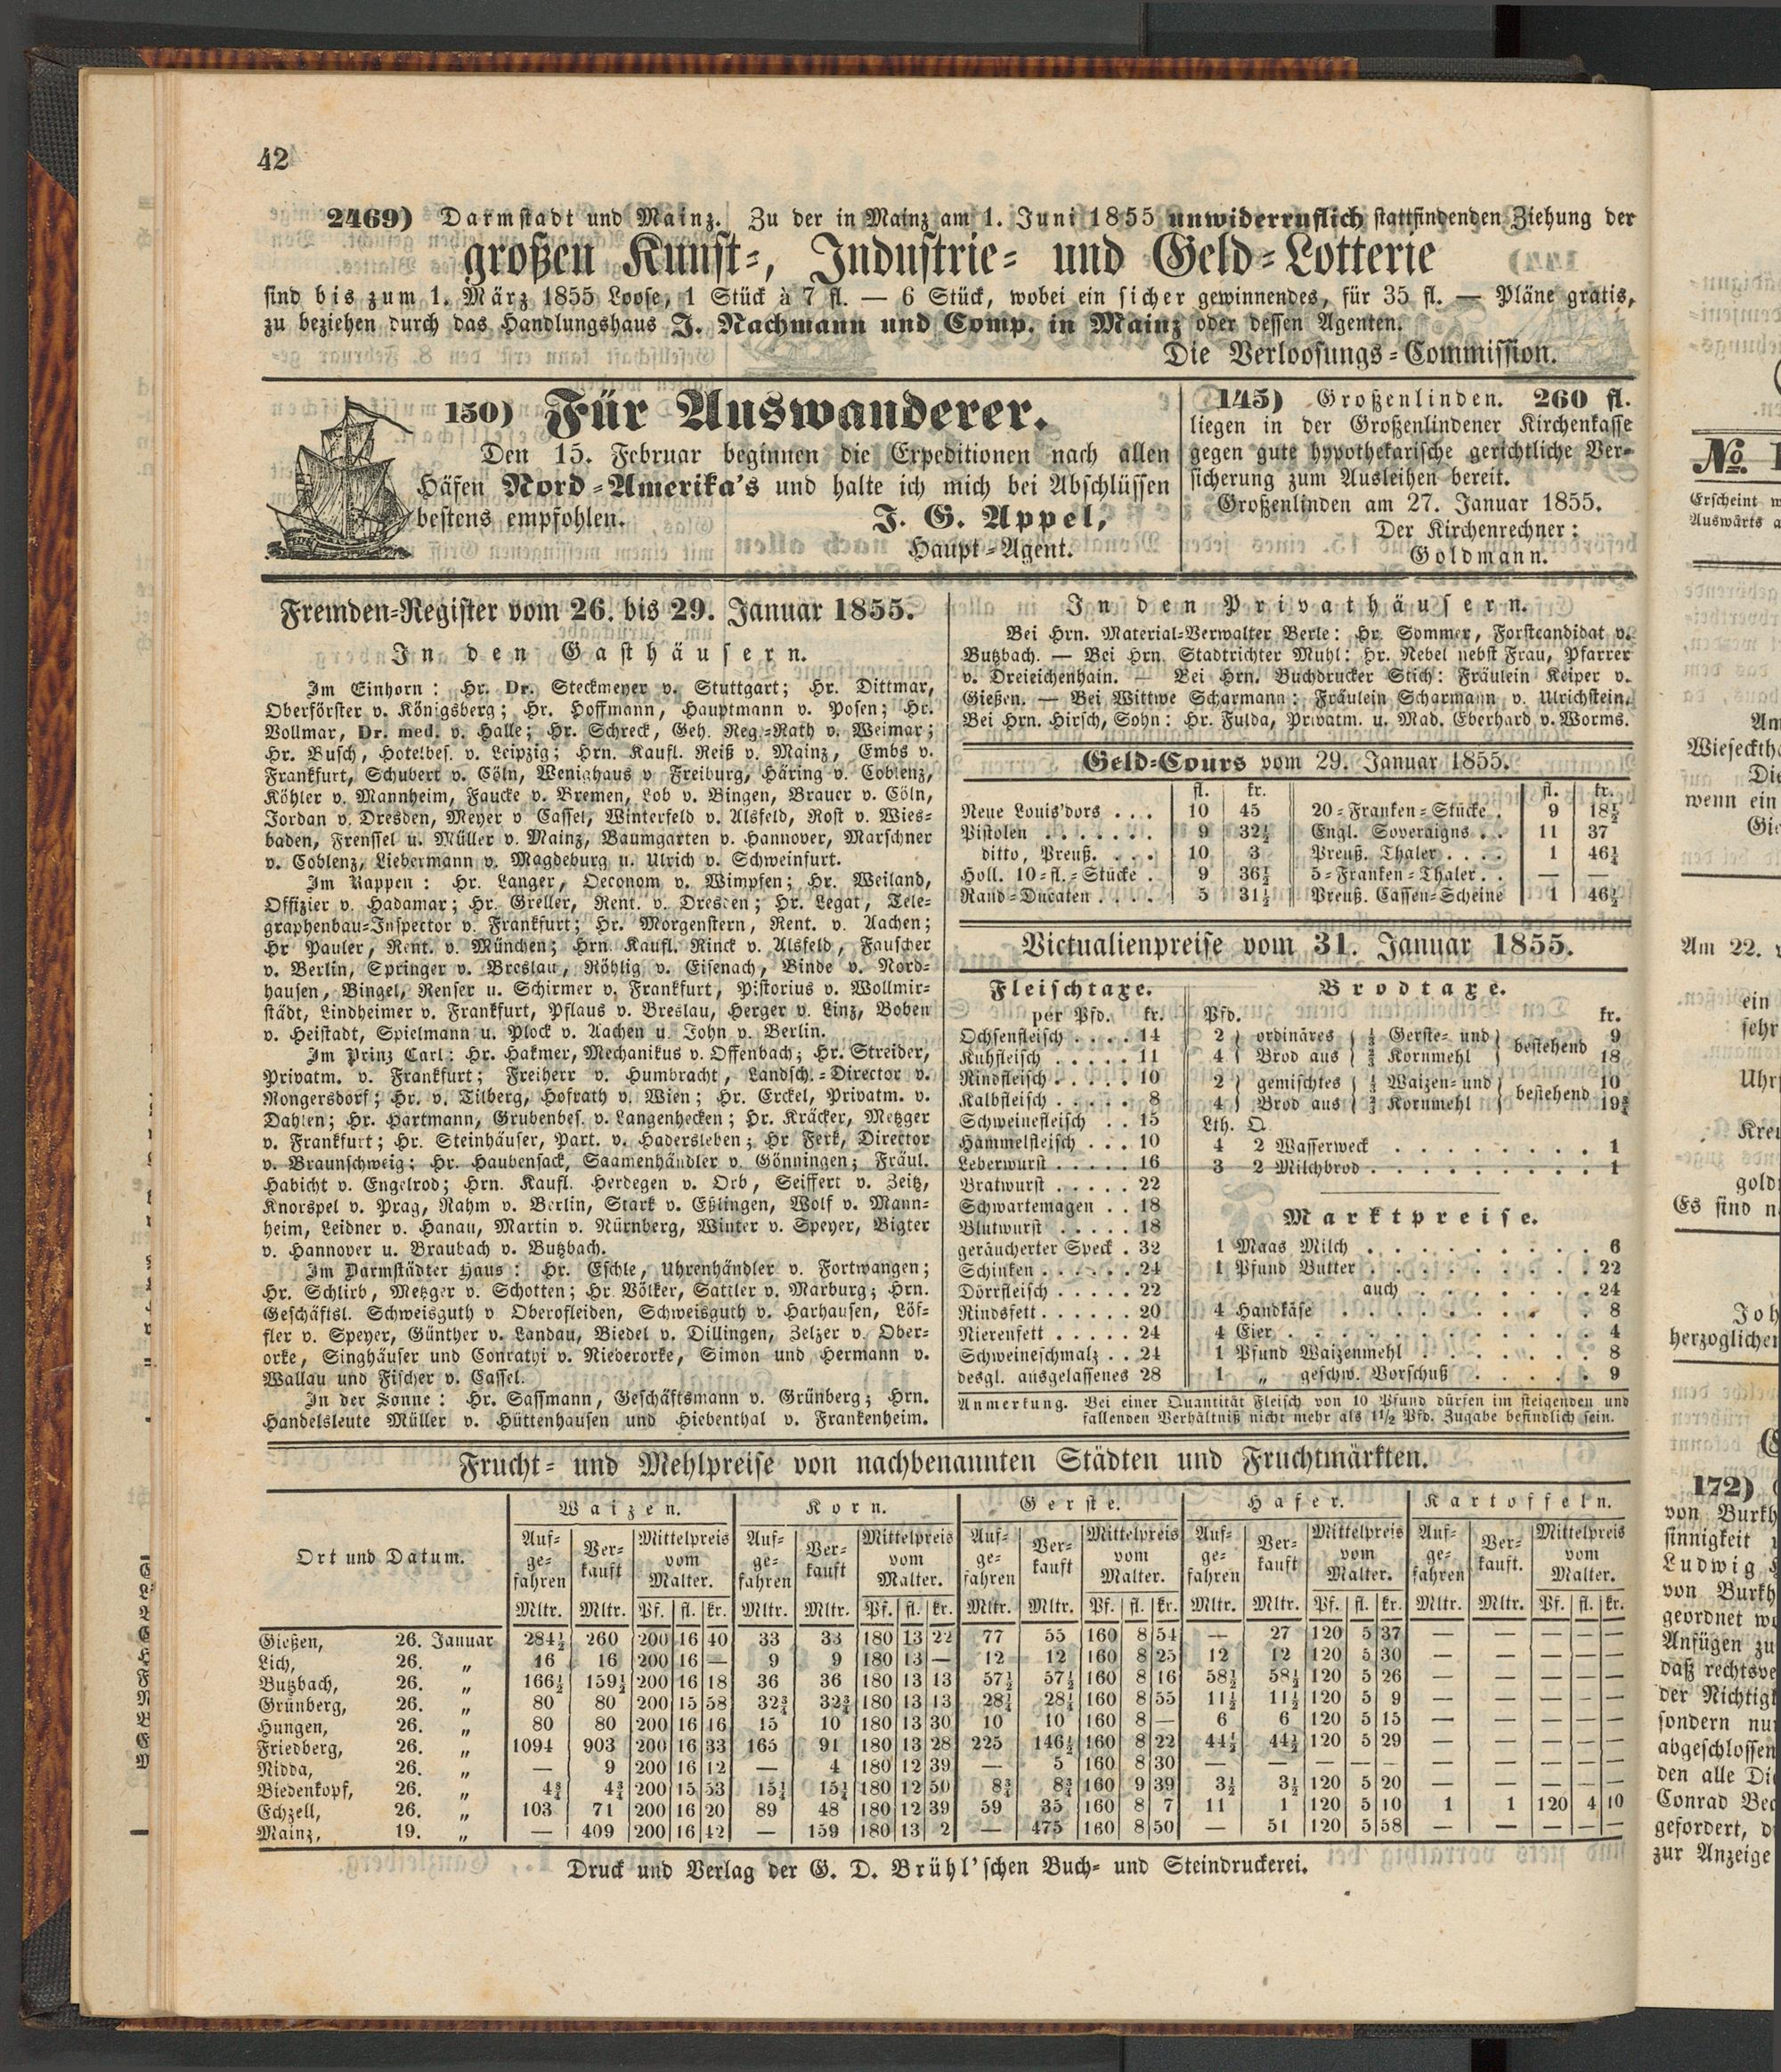 42
2469) Darmstadt und Mainz. Zu der in Mainz am 1. Juni 1855 unwiderruflich stattfindenden Ziehung der
großen Kunst-, Industrie- und Geld-Lotterie
sind bis zum 1. März 1855 Loose, 1 Stück à 7 fl. — 6 Stück, wobei ein sicher gewinnendes, für 35 fl. — Pläne gratis,
zu beziehen durch das Handlungshaus J. Nachmann und Comp. in Mainz oder dessen Agenten.
Die Verloosungs-Commission.
150) Für Auswanderer.
Den 15. Februar beginnen die Expeditionen nach allen
Häfen Nord-Amerika's und halte ich mich bei Abschlüssen
bestens empfohlen. J. G. Appel,
Haupt-Agent.
145) Großenlinden. 260 fl.
liegen in der Großenlindener Kirchenkasse
gegen gute hypothekarische gerichtliche Ver-
sicherung zum Ausleihen bereit.
Großenlinden am 27. Januar 1855.
Der Kirchenrechner:
Goldmann.
Fremden-Register vom 26. bis 29. Januar 1855.
In den Gasthäusern.
Im Einhorn: Hr. Dr. Steckmeyer v. Stuttgart; Hr. Dittmar,
Oberförster v. Königsberg; Hr. Hoffmann, Hauptmann v. Posen; Hr.
Vollmar, Dr. med. v. Halle; Hr. Schreck, Geh. Reg.-Rath v. Weimar;
Hr. Busch, Hotelbes. v. Leipzig; Hrn. Kaufl. Reiß v. Mainz, Embs v.
Frankfurt, Schubert v. Cöln, Wenighaus v Freiburg, Häring v. Coblenz,
Köhler v. Mannheim, Faucke v. Bremen, Lob v. Bingen, Brauer v. Cöln,
Jordan v. Dresden, Meyer v Cassel, Winterfeld v. Alsfeld, Rost v. Wies-
baden, Frenssel u. Müller v. Mainz, Baumgarten v. Hannover, Marschner
v. Coblenz, Liebermann v. Magdeburg u. Ulrich v. Schweinfurt.
Im Rappen: Hr. Langer, Oeconom v. Wimpfen; Hr. Weiland,
Offizier v. Hadamar; Hr. Greller, Rent. v. Dresden; Hr. Legat, Tele-
graphenbau-Inspector v. Frankfurt; Hr. Morgenstern, Rent. v. Aachen;
Hr Pauler, Rent. v. München; Hrn. Kaufl. Rinck v. Alsfeld, Fauscher
v. Berlin, Springer v. Breslau, Röhlig v. Eisenach, Binde v. Nord-
hausen, Bingel, Renser u. Schirmer v. Frankfurt, Pistorius v. Wollmir-
städt, Lindheimer v. Frankfurt, Pflaus v. Breslau, Herger v. Linz, Boben
v. Heistadt, Spielmann u. Plock v. Aachen u. John v. Berlin.
Im Prinz Carl: Hr. Hakmer, Mechanikus v. Offenbach; Hr. Streider,
Privatm. v. Frankfurt; Freiherr v. Humbracht, Landsch.-Director v.
Rongersdorf; Hr. v. Tilberg, Hofrath v. Wien; Hr. Erckel, Privatm. v.
Dahlen; Hr. Hartmann, Grubenbes. v. Langenhecken; Hr. Kräcker, Metzger
v. Frankfurt; Hr. Steinhäuser, Part. v. Hadersleben; Hr Ferk, Director
v. Braunschweig; Hr. Haubensack, Saamenhändler v. Gönningen; Fräul.
Habicht v. Engelrod; Hrn. Kaufl. Herdegen v. Orb, Seiffert v. Zeitz,
Knorspel v. Prag, Rahm v. Berlin, Stark v. Eßlingen, Wolf v. Mann-
heim, Leidner v. Hanau, Martin v. Nürnberg, Winter v. Speyer, Bigter
v. Hannover u. Braubach v. Butzbach.
Im Darmstädter Haus: Hr. Eschle, Uhrenhändler v. Fortwangen;
Hr. Schlirb, Metzger v. Schotten; Hr. Völker, Sattler v. Marburg; Hrn.
Geschäftsl. Schweisguth v Oberofleiden, Schweisguth v. Harhausen, Löf-
fler v. Speyer, Günther v. Landau, Biedel v. Dillingen, Zelzer v. Ober-
orke, Singhäuser und Conrathi v. Niederorke, Simon und Hermann v.
Wallau und Fischer v. Cassel.
In der Sonne: Hr. Sassmann, Geschäftsmann v. Grünberg; Hrn.
Handelsleute Müller v. Hüttenhausen und Hiebenthal v. Frankenheim.
In den Privathäusern.
Bei Hrn. Material-Verwalter Berle: Hr. Sommer, Forstcandidat v.
Butzbach. — Bei Hrn. Stadtrichter Muhl: Hr. Nebel nebst Frau, Pfarrer
v. Dreieichenhain. — Bei Hrn. Buchdrucker Stich: Fräulein Keiper v.
Gießen. — Bei Wittwe Scharmann: Fräulein Scharmann v. Ulrichstein.
Bei Hrn. Hirsch, Sohn: Hr. Fulda, Privatm. u. Mad. Eberhard v. Worms.
Geld-Cours vom 29. Januar 1855.
fl. kr. fl. kr.
Neue Louis'dors . . . 10 45 20-Franken-Stücke . 9 18½
Pistolen . . . . . . . 9 32½ Engl. Soveraigns . . 11 37
ditto, Preuß. . . . 10 3 Preuß. Thaler . . . . 1 46¼
Holl. 10-fl.-Stücke . 9 36½ 5-Franken-Thaler . . — —
Rand-Ducaten . . . . 5 31½ Preuß. Cassen-Scheine 1 46½
Victualienpreise vom 31. Januar 1855.
Fleischtaxe.
per Pfd. kr.
Ochsenfleisch . . . . 14
Kuhfleisch . . . . . 11
Rindfleisch . . . . . 10
Kalbfleisch . . . . . 8
Schweinefleisch . . 15
Hammelfleisch . . . 10
Leberwurst . . . . . 16
Bratwurst . . . . . 22
Schwartemagen . . 18
Blutwurst . . . . . 18
geräucherter Speck . 32
Schinken . . . . . . 24
Dörrfleisch . . . . . 22
Rindsfett . . . . . . 20
Nierenfett . . . . . 24
Schweineschmalz . . 24
desgl. ausgelassenes 28
Brodtaxe.
Pfd. kr.
2 } ordinäres { ⅓ Gerste- und } bestehend 9
4 } Brod aus { ⅔ Kornmehl } 18
2 } gemischtes { ⅓ Waizen- und } bestehend 10
4 } Brod aus { ⅔ Kornmehl } 19¾
Lth. Q.
4 2 Wasserweck . . . . . . . . . 1
3 2 Milchbrod . . . . . . . . . . 1
Marktpreise.
1 Maas Milch . . . . . . . . . . 6
1 Pfund Butter . . . . . . . . . 22
auch . . . . . . . 24
4 Handkäse . . . . . . . . . . 8
4 Eier . . . . . . . . . . . . . 4
1 Pfund Waizenmehl . . . . . . . 8
1 „ geschw. Vorschuß . . . . . 9
Anmerkung. Bei einer Quantität Fleisch von 10 Pfund dürfen im steigenden und
fallenden Verhältniß nicht mehr als 1½ Pfd. Zugabe befindlich sein.
Frucht- und Mehlpreise von nachbenannten Städten und Fruchtmärkten.
Ort und Datum. Waizen. Korn. Gerste. Hafer. Kartoffeln.
Auf- Ver- Mittelpreis Auf- Ver- Mittelpreis Auf- Ver- Mittelpreis Auf- Ver- Mittelpreis Auf- Ver- Mittelpreis
ge- kauft vom ge- kauft vom ge- kauft vom ge- kauft vom ge- kauft. vom
fahren Malter. fahren Malter. fahren Malter. fahren Malter. fahren Malter.
Mltr. Mltr. Pf. fl. kr. Mltr. Mltr. Pf. fl. kr. Mltr. Mltr. Pf. fl. kr. Mltr. Mltr. Pf. fl. kr. Mltr. Mltr. Pf. fl. kr.
Gießen, 26. Januar 284½ 260 200 16 40 33 33 180 13 22 77 55 160 8 54 — 27 120 5 37 — — — — —
Lich, 26. „ 16 16 200 16 — 9 9 180 13 — 12 12 160 8 25 12 12 120 5 30 — — — — —
Butzbach, 26. „ 166½ 159½ 200 16 18 36 36 180 13 13 57½ 57½ 160 8 16 58½ 58½ 120 5 26 — — — — —
Grünberg, 26. „ 80 80 200 15 58 32¾ 32¾ 180 13 13 28¼ 28¼ 160 8 55 11½ 11½ 120 5 9 — — — — —
Hungen, 26. „ 80 80 200 16 16 15 10 180 13 30 10 10 160 8 — 6 6 120 5 15 — — — — —
Friedberg, 26. „ 1094 903 200 16 33 165 91 180 13 28 225 146½ 160 8 22 44½ 44½ 120 5 29 — — — — —
Nidda, 26. „ — 9 200 16 12 — 4 180 12 39 — 5 160 8 30 — — — — — — — — — —
Biedenkopf, 26. „ 4¾ 4¾ 200 15 53 15¼ 15¼ 180 12 50 8¾ 8¾ 160 9 39 3½ 3½ 120 5 20 — — — — —
Echzell, 26. „ 103 71 200 16 20 89 48 180 12 39 59 35 160 8 7 11 1 120 5 10 1 1 120 4 10
Mainz, 19. „ — 409 200 16 42 — 159 180 13 2 — 475 160 8 50 — 51 120 5 58 — — — — —
Druck und Verlag der G. D. Brühl'schen Buch- und Steindruckerei.
No.
Erscheint
Auswärts
Am
Die
wenn ein
Am 22.
ein
sehr
Es sind
herzogliche
172)
von Burkh
sinnigkeit
Ludwig
von Burkh
geordnet
Anfügen zu
daß rechts
der Nichtig
sondern nur
abgeschlossen
den alle Di
Conrad Bec
gefordert,
zur Anzeige